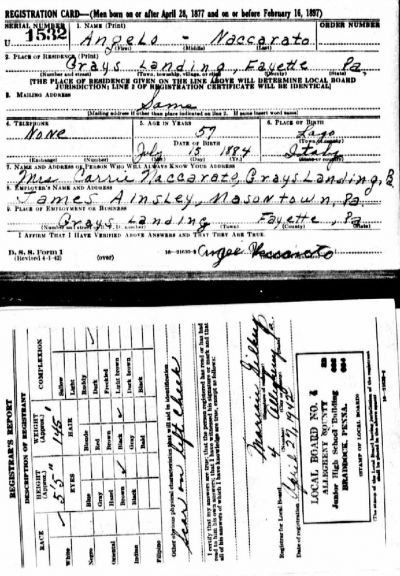 REGISTRATION CARD—(Men born on or after April 28, 1877 and on or before February 16, 1897)
SERIAL NUMBER 1. NAME (Print) ORDER NUMBER
U 1532 Angelo - Naccarato
(First) (Middle) (Last)
2. PLACE OF RESIDENCE (Print)
Grays Landing, Fayette Pa.
(Number and street) (Town, township, village, or city) (County) (State)
[THE PLACE OF RESIDENCE GIVEN ON THE LINE ABOVE WILL DETERMINE LOCAL BOARD
JURISDICTION; LINE 2 OF REGISTRATION CERTIFICATE WILL BE IDENTICAL]
3. MAILING ADDRESS
Same
[Mailing address if other than place indicated on line 2. If same insert word same]
4. TELEPHONE 5. AGE IN YEARS 6. PLACE OF BIRTH
None 57 Lago
DATE OF BIRTH (Town or county)
July 13 1884 Italy
(Exchange) (Number) (Mo.) (Day) (Yr.) (State or country)
7. NAME AND ADDRESS OF PERSON WHO WILL ALWAYS KNOW YOUR ADDRESS
Mrs Carrie Naccarato, Grays Landing, Pa
8. EMPLOYER'S NAME AND ADDRESS
James Ainsley, Masontown, Pa
9. PLACE OF EMPLOYMENT OR BUSINESS
Grays Landing Fayette, Pa
(Number and street or R. F. D. number) (Town) (County) (State)
I AFFIRM THAT I HAVE VERIFIED ABOVE ANSWERS AND THAT THEY ARE TRUE.
D. S. S. Form 1
(Revised 4-1-42) (over) Naccarato
REGISTRAR'S REPORT
DESCRIPTION OF REGISTRANT
RACE HEIGHT (Approx.) WEIGHT (Approx.) COMPLEXION
5'5" 145
EYES HAIR
White Blue Blonde Sallow
Light
Negro Gray Red Ruddy
Dark
Oriental Hazel Brown Freckled
Brown Black Light brown
Indian Black Gray Dark brown
Filipino Bald Black
Other obvious physical characteristics that will aid in identification
Scar on left cheek
I certify that my answers are true; that the person registered has read or has had
read to him his own answers; that I have witnessed his signature or mark and that
all of his answers of which I have knowledge are true, except as follows:
Registrar for Local Board 4 Allegheny Pa.
Date of registration April 27, 1942
LOCAL BOARD NO. 4
ALLEGHENY COUNTY
Junior High School Building
BRADDOCK, PENNA.
(STAMP OF LOCAL BOARD)